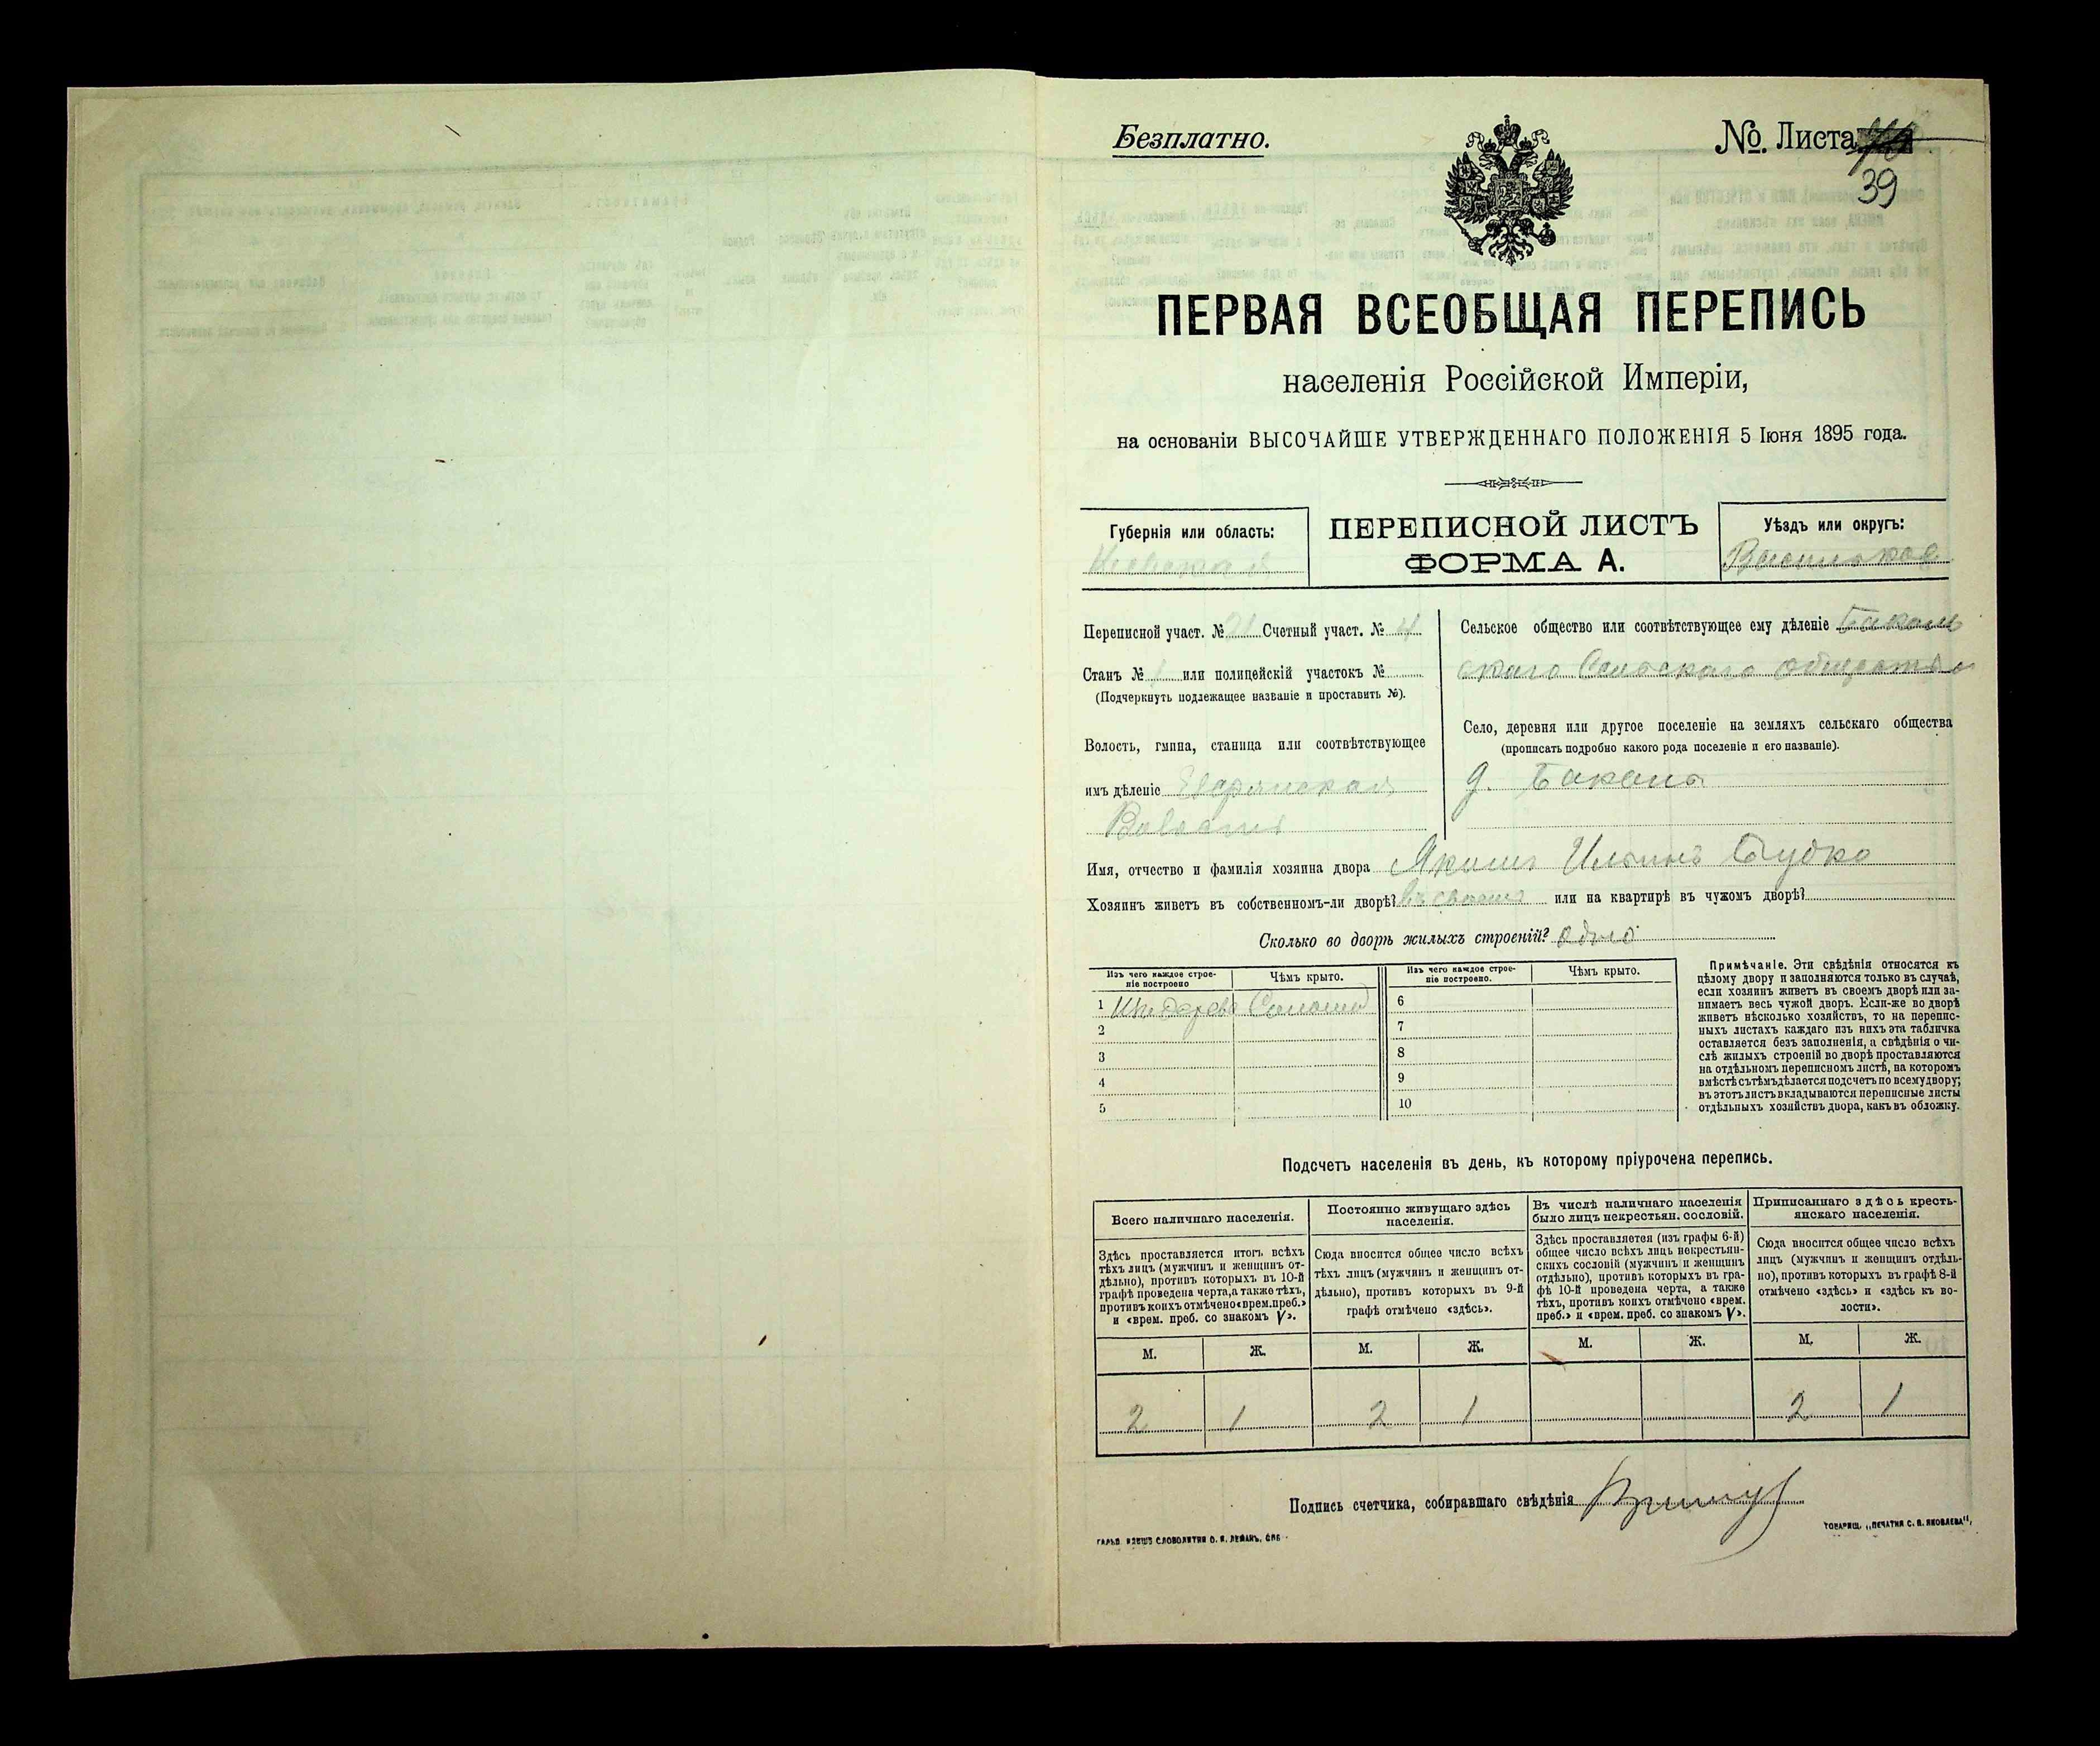 Безплатно.
№ Листа
39
ПЕРВАЯ ВСЕОБЩАЯ ПЕРЕПИСЬ
населенія Россійской Имперіи,
на основаніи ВЫСОЧАЙШЕ УТВЕРЖДЕННАГО ПОЛОЖЕНІЯ 5 Іюня 1895 года.
Губернія или область:
Кіевская
ПЕРЕПИСНОЙ ЛИСТЪ
ФОРМА А.
Уѣздъ или округъ:
Переписной участ. № 21 Счетный участ. № 4
Станъ № или полицейскій участокъ №
(Подчеркнуть подлежащее названіе и проставить №).
Волость, гмина, станица или соотвѣтствующее
имъ дѣленіе
Волость
Сельское общество или соотвѣтствующее ему дѣленіе Бакал
скаго Сельскаго общества
Село, деревня или другое поселеніе на земляхъ сельскаго общества
(прописать подробно какого рода поселеніе и его названіе).
д.
Имя, отчество и фамилія хозяина двора Якимъ Ильинъ
Хозяинъ живетъ въ собственномъ-ли дворѣ? въ своемъ или на квартирѣ въ чужомъ дворѣ?
Сколько во дворѣ жилыхъ строеній? одно
Изъ чего каждое строе-
ніе построено
Чѣмъ крыто.
Изъ чего каждое строе-
ніе построено.
Чѣмъ крыто.
1 Изъ дерева Соломой
2
3
4
5
6
7
8
9
10
Примѣчаніе. Эти свѣдѣнія относятся къ
цѣлому двору и заполняются только въ случаѣ,
если хозяинъ живетъ въ своемъ дворѣ или за-
нимаетъ весь чужой дворъ. Если-же во дворѣ
живетъ нѣсколько хозяйствъ, то на перепис-
ныхъ листахъ каждаго изъ нихъ эта табличка
оставляется безъ заполненія, а свѣдѣнія о чи-
слѣ жилыхъ строеній во дворѣ проставляются
на отдѣльномъ переписномъ листѣ, на которомъ
вмѣстѣ съ тѣмъ дѣлается подсчетъ по всему двору;
въ этотъ листъ вкладываются переписные листы
отдѣльныхъ хозяйствъ двора, какъ въ обложку.
Подсчетъ населенія въ день, къ которому пріурочена перепись.
Всего наличнаго населенія.
Здѣсь проставляется итогъ всѣхъ
тѣхъ лицъ (мужчинъ и женщинъ от-
дѣльно), противъ которыхъ въ 10-й
графѣ проведена черта, а также тѣхъ,
противъ коихъ отмѣчено «врем. преб.»
и «врем. преб. со знакомъ V».
Постоянно живущаго здѣсь
населенія.
Сюда вносится общее число всѣхъ
тѣхъ лицъ (мужчинъ и женщинъ от-
дѣльно), противъ которыхъ въ 9-й
графѣ отмѣчено «здѣсь».
Въ числѣ наличнаго населенія
было лицъ некрестьян. сословій.
Здѣсь проставляется (изъ графы 6-й)
общее число всѣхъ лицъ некрестьян-
скихъ сословій (мужчинъ и женщинъ
отдѣльно), противъ которыхъ въ гра-
фѣ 10-й проведена черта, а также
тѣхъ, противъ коихъ отмѣчено «врем.
преб.» и «врем. преб. со знакомъ V».
Приписаннаго здѣсь кресть-
янскаго населенія.
Сюда вносится общее число всѣхъ
лицъ (мужчинъ и женщинъ отдѣль-
но), противъ которыхъ въ графѣ 8-й
отмѣчено «здѣсь» и «здѣсь къ во-
лости».
М. Ж. М. Ж. М. Ж. М. Ж.
2 1 2 1 2 1
Подпись счетчика, собиравшаго свѣдѣнія
СЛОВОЛИТНИ О. И. ЛЕМАНЪ, СПБ
ТОВАРИЩ. „ПЕЧАТНЯ С. П. ЯКОВЛЕВА“,